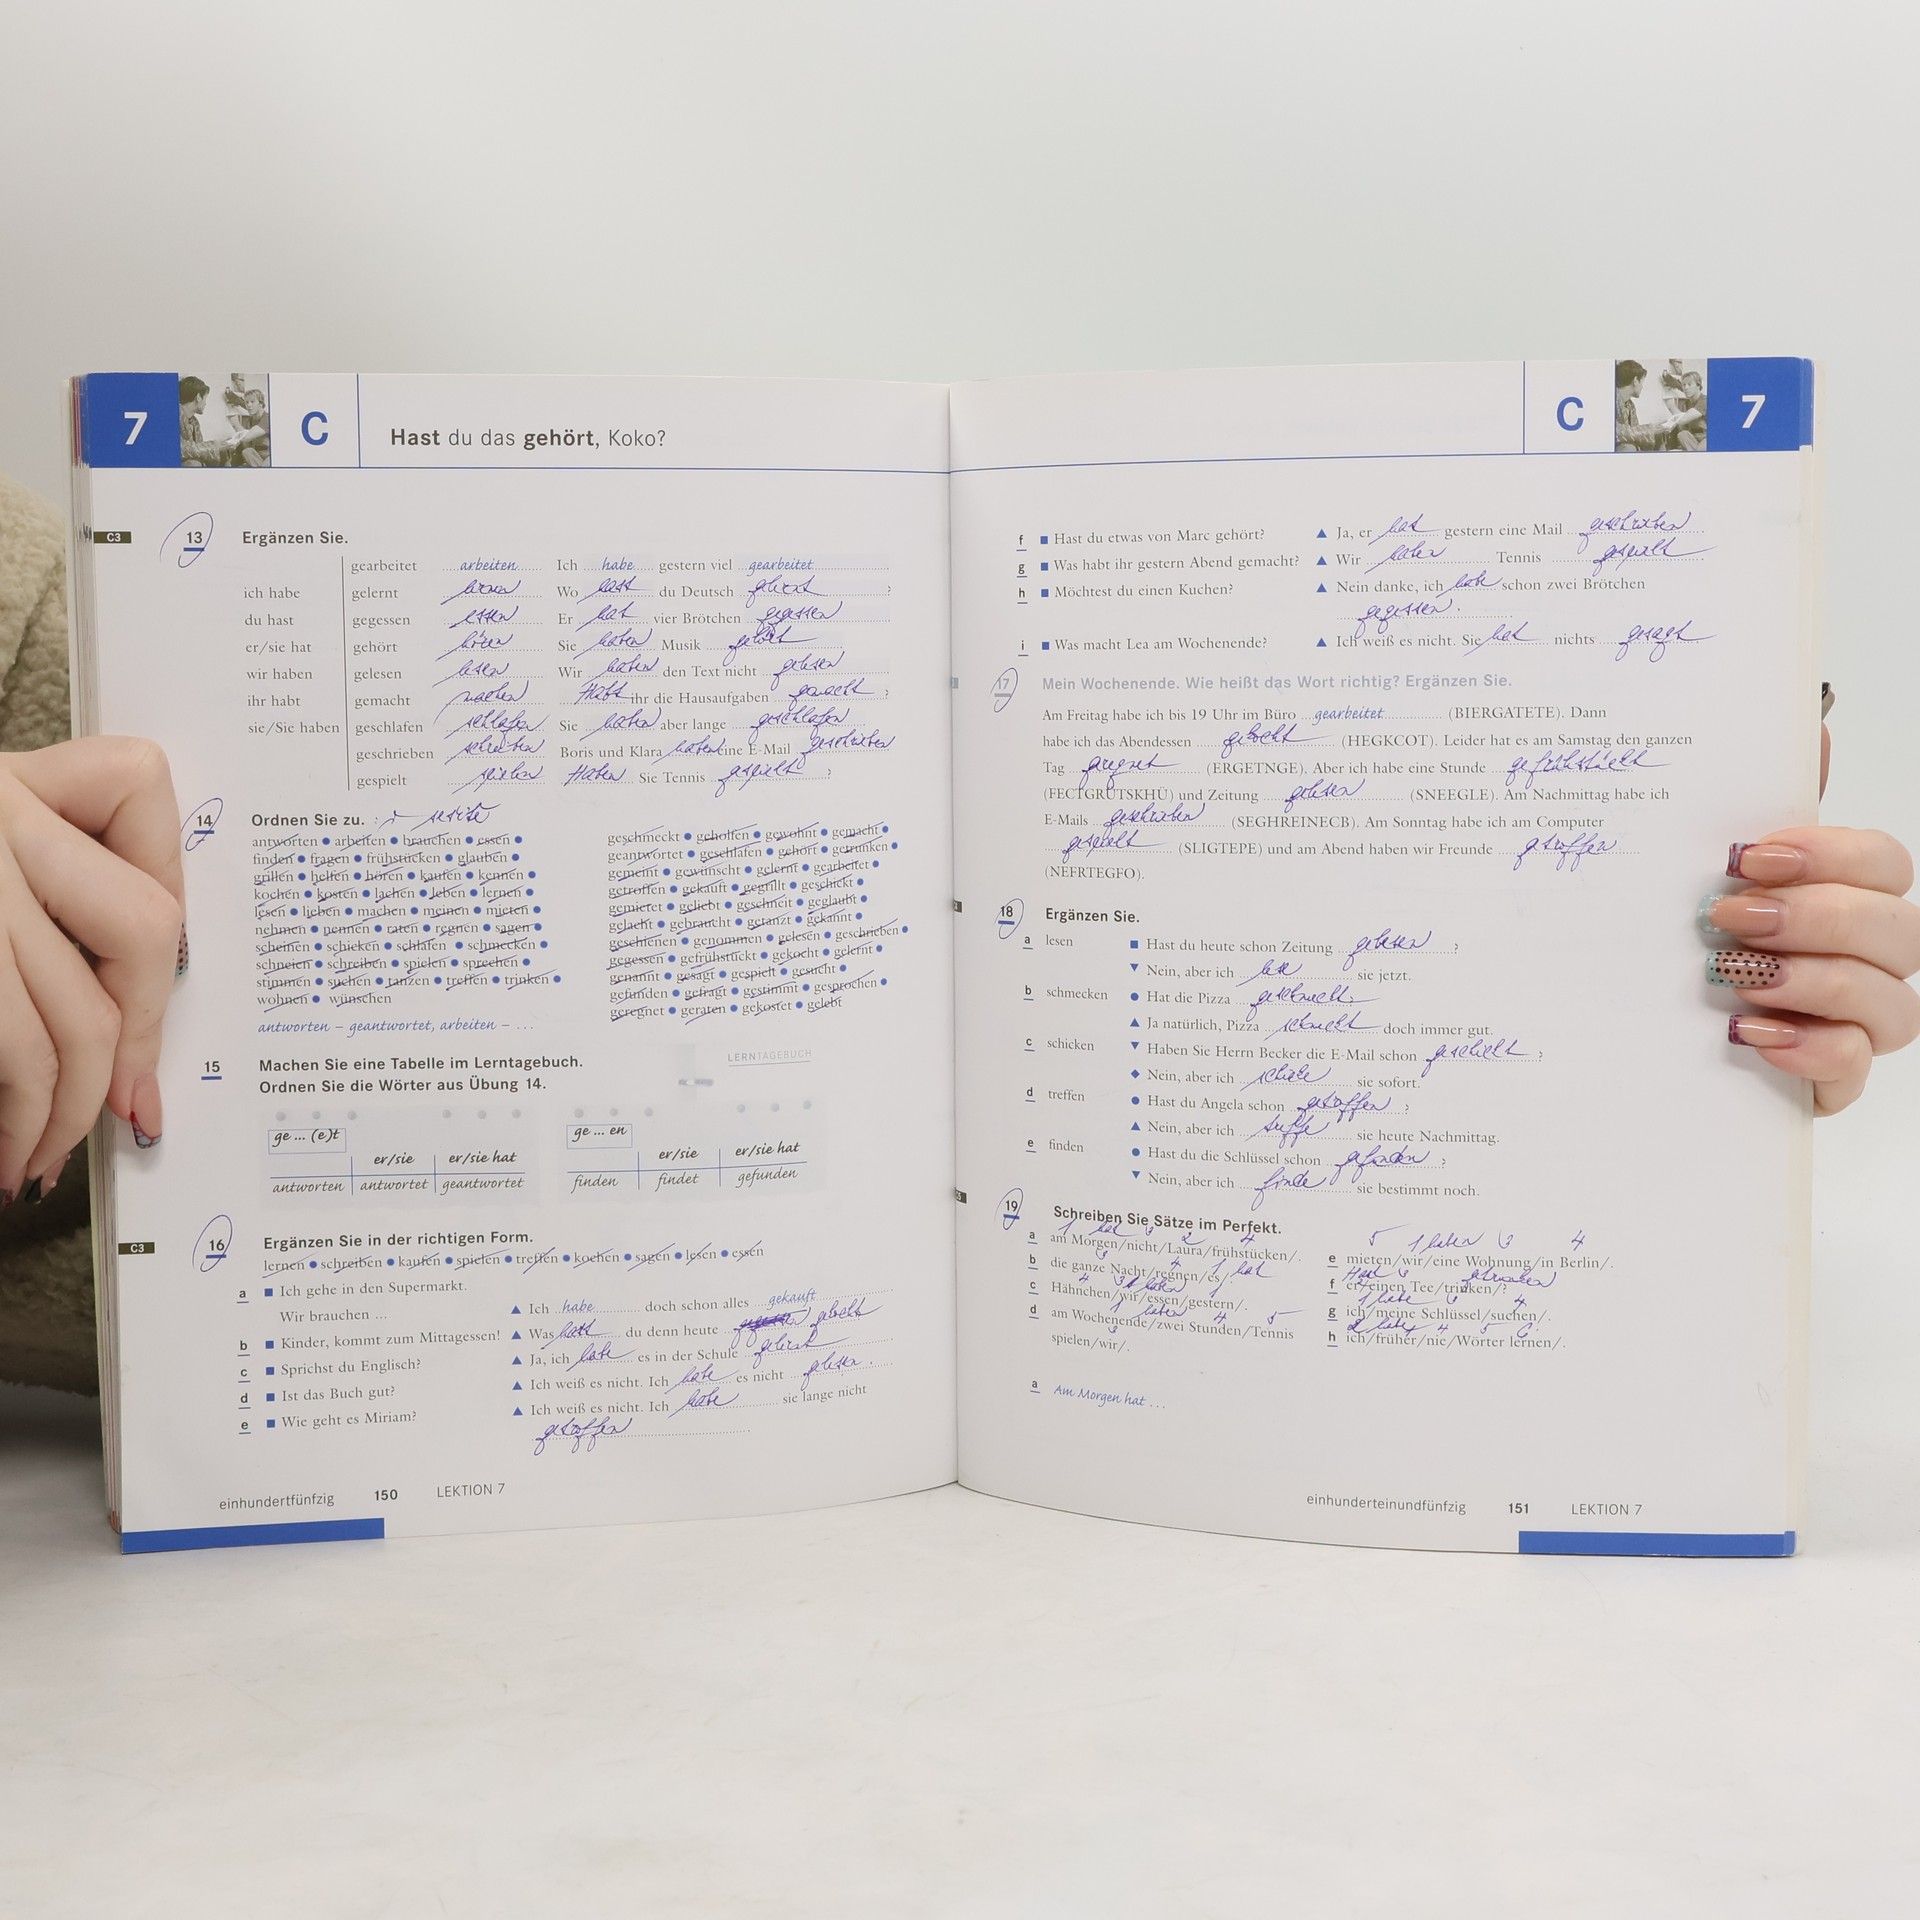 7 C Hast du das gehört, Koko?
C3
13 Ergänzen Sie.
gearbeitet arbeiten Ich habe gestern viel gearbeitet
ich habe gelernt lernen Wo hast du Deutsch gelernt ?
du hast gegessen essen Er hat vier Brötchen gegessen
er/sie hat gehört hören Sie haben Musik gehört
wir haben gelesen lesen Wir haben den Text nicht gelesen
ihr habt gemacht machen Habt ihr die Hausaufgaben gemacht ?
sie/Sie haben geschlafen schlafen Sie haben aber lange geschlafen
geschrieben schreiben Boris und Klara haben eine E-Mail geschrieben
gespielt spielen Haben Sie Tennis gespielt ?
14 Ordnen Sie zu.
antworten • arbeiten • brauchen • essen •
finden • fragen • frühstücken • glauben •
grillen • helfen • hören • kaufen • kennen •
kochen • kosten • lachen • leben • lernen •
lesen • lieben • machen • meinen • mieten •
nehmen • nennen • raten • regnen • sagen •
scheinen • schicken • schlafen • schmecken •
schneien • schreiben • spielen • sprechen •
stimmen • suchen • tanzen • treffen • trinken •
wohnen • wünschen
geschmeckt • geholfen • gewohnt • gemacht •
geantwortet • geschlafen • gehört • getrunken •
gemeint • gewünscht • gelernt • gearbeitet •
getroffen • gekauft • gegrillt • geschickt •
gemietet • geliebt • geschneit • geglaubt •
gelacht • gebraucht • getanzt • gekannt •
geschienen • genommen • gelesen • geschrieben •
gegessen • gefrühstückt • gekocht • gelernt •
genannt • gesagt • gespielt • gesucht •
gefunden • gefragt • gestimmt • gesprochen •
geregnet • geraten • gekostet • gelebt
antworten – geantwortet, arbeiten – ...
15 Machen Sie eine Tabelle im Lerntagebuch.
Ordnen Sie die Wörter aus Übung 14.
LERNTAGEBUCH
ge ... (e)t
er/sie er/sie hat
antworten antwortet geantwortet
ge ... en
er/sie er/sie hat
finden findet gefunden
C3
16 Ergänzen Sie in der richtigen Form.
lernen • schreiben • kaufen • spielen • treffen • kochen • sagen • lesen • essen
a ■ Ich gehe in den Supermarkt.
Wir brauchen ... ▲ Ich habe doch schon alles gekauft
b ■ Kinder, kommt zum Mittagessen! ▲ Was hast du denn heute gekocht
c ■ Sprichst du Englisch? ▲ Ja, ich habe es in der Schule gelernt
d ■ Ist das Buch gut? ▲ Ich weiß es nicht. Ich habe es nicht gelesen.
e ■ Wie geht es Miriam? ▲ Ich weiß es nicht. Ich habe sie lange nicht
getroffen
einhundertfünfzig 150 LEKTION 7
C 7
f ■ Hast du etwas von Marc gehört? ▲ Ja, er hat gestern eine Mail geschrieben
g ■ Was habt ihr gestern Abend gemacht? ▲ Wir haben Tennis gespielt
h ■ Möchtest du einen Kuchen? ▲ Nein danke, ich habe schon zwei Brötchen
gegessen.
i ■ Was macht Lea am Wochenende? ▲ Ich weiß es nicht. Sie hat nichts gesagt
17 Mein Wochenende. Wie heißt das Wort richtig? Ergänzen Sie.
Am Freitag habe ich bis 19 Uhr im Büro gearbeitet (BIERGATETE). Dann
habe ich das Abendessen gekocht (HEGKCOT). Leider hat es am Samstag den ganzen
Tag geregnet (ERGETNGE). Aber ich habe eine Stunde gefrühstückt
(FECTGRUTSKHÜ) und Zeitung gelesen (SNEEGLE). Am Nachmittag habe ich
E-Mails geschrieben (SEGHREINECB). Am Sonntag habe ich am Computer
gespielt (SLIGTEPE) und am Abend haben wir Freunde getroffen
(NEFRTEGFO).
18 Ergänzen Sie.
a lesen ■ Hast du heute schon Zeitung gelesen ?
▼ Nein, aber ich lese sie jetzt.
b schmecken ● Hat die Pizza geschmeckt
▲ Ja natürlich, Pizza schmeckt doch immer gut.
c schicken ▼ Haben Sie Herrn Becker die E-Mail schon geschickt ?
◆ Nein, aber ich schicke sie sofort.
d treffen ● Hast du Angela schon getroffen ?
▲ Nein, aber ich treffe sie heute Nachmittag.
e finden ● Hast du die Schlüssel schon gefunden ?
▼ Nein, aber ich finde sie bestimmt noch.
19 Schreiben Sie Sätze im Perfekt.
1 hat 3 2 4
a am Morgen/nicht/Laura/frühstücken/.
3 4 1 hat
b die ganze Nacht/regnen/es/.
4 3 1 haben
c Hähnchen/wir/essen/gestern/.
1 haben 4 5
d am Wochenende/zwei Stunden/Tennis
3
spielen/wir/.
5 1 haben 3 4
e mieten/wir/eine Wohnung/in Berlin/.
Hast getrunken
f er/einen Tee/trinken/?
1 habe 4
g ich/meine Schlüssel/suchen/.
habe 4 5 6
h ich/früher/nie/Wörter lernen/.
a Am Morgen hat ...
einhunderteinundfünfzig 151 LEKTION 7